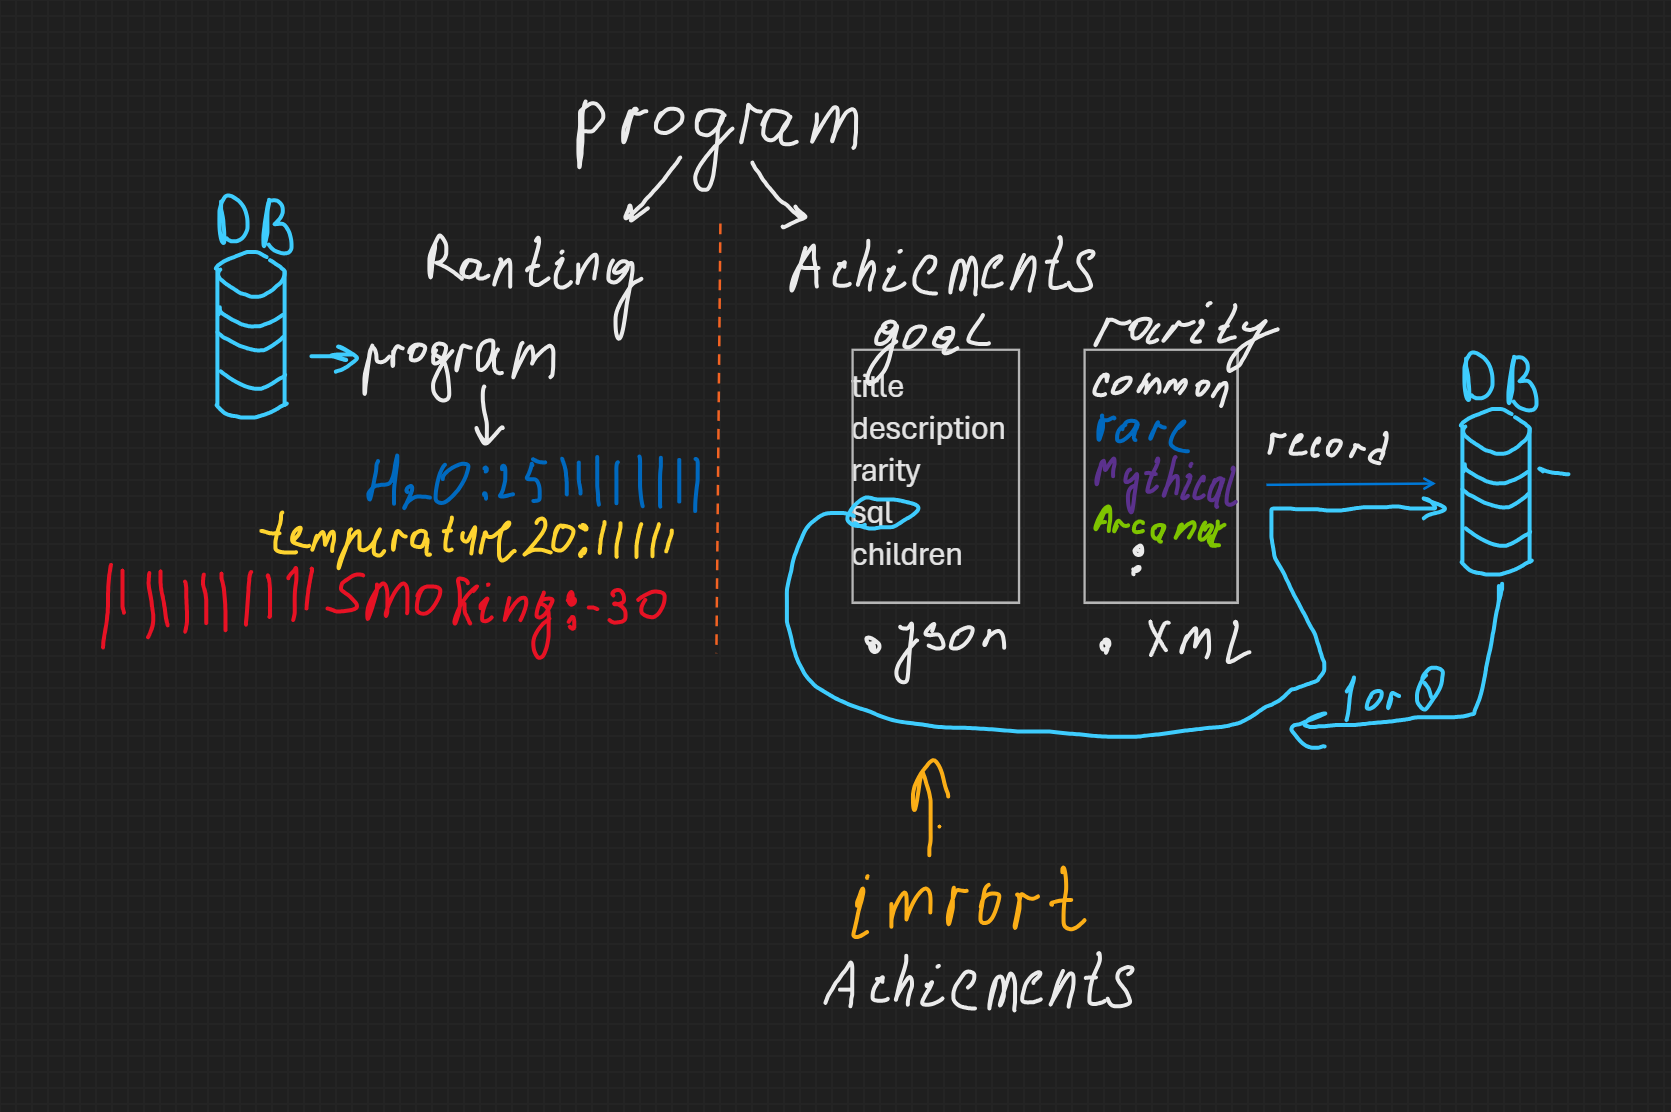 program
DB
Ranting
program
H2O:25
temperature 20:
Smoking:-30
Achiements
goal
title
description
rarity
sql
children
.json
rarity
common
rare
Mythical
Arcanot
.xml
record
DB
1 or 0
imrort
Achiements